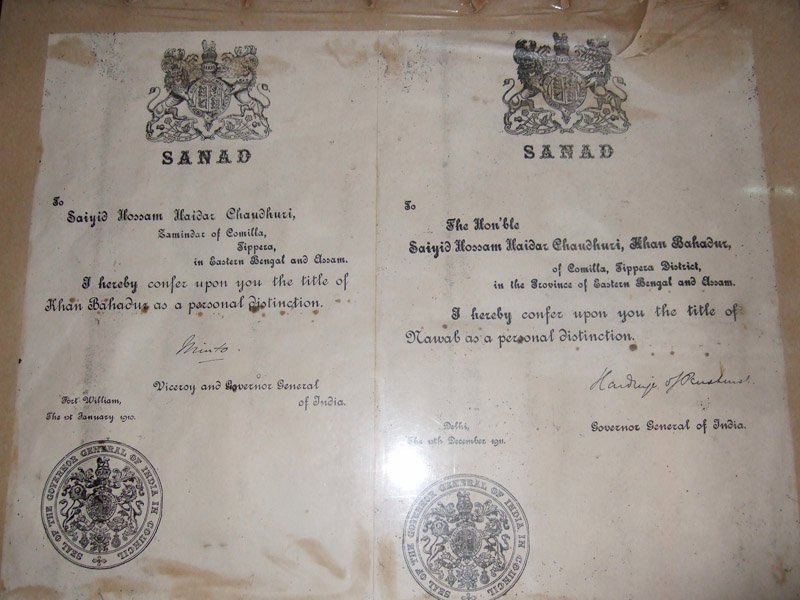 SANAD
To
Saiyid Hossam Haidar Chaudhuri,
Zamindar of Comilla,
Tippera,
in Eastern Bengal and Assam.
I hereby confer upon you the title of
Khan Bahadur as a personal distinction.
Minto.
Viceroy and Governor General
of India.
Fort William,
The 1st January 1910.
SEAL OF THE GOVERNOR GENERAL OF INDIA IN COUNCIL
SANAD
To
The Hon'ble
Saiyid Hossam Haidar Chaudhuri, Khan Bahadur,
of Comilla, Tippera District,
in the Province of Eastern Bengal and Assam.
I hereby confer upon you the title of
Nawab as a personal distinction.
Hardinge of Penshurst.
Governor General of India.
Delhi,
The 12th December 1911.
SEAL OF THE GOVERNOR GENERAL OF INDIA IN COUNCIL